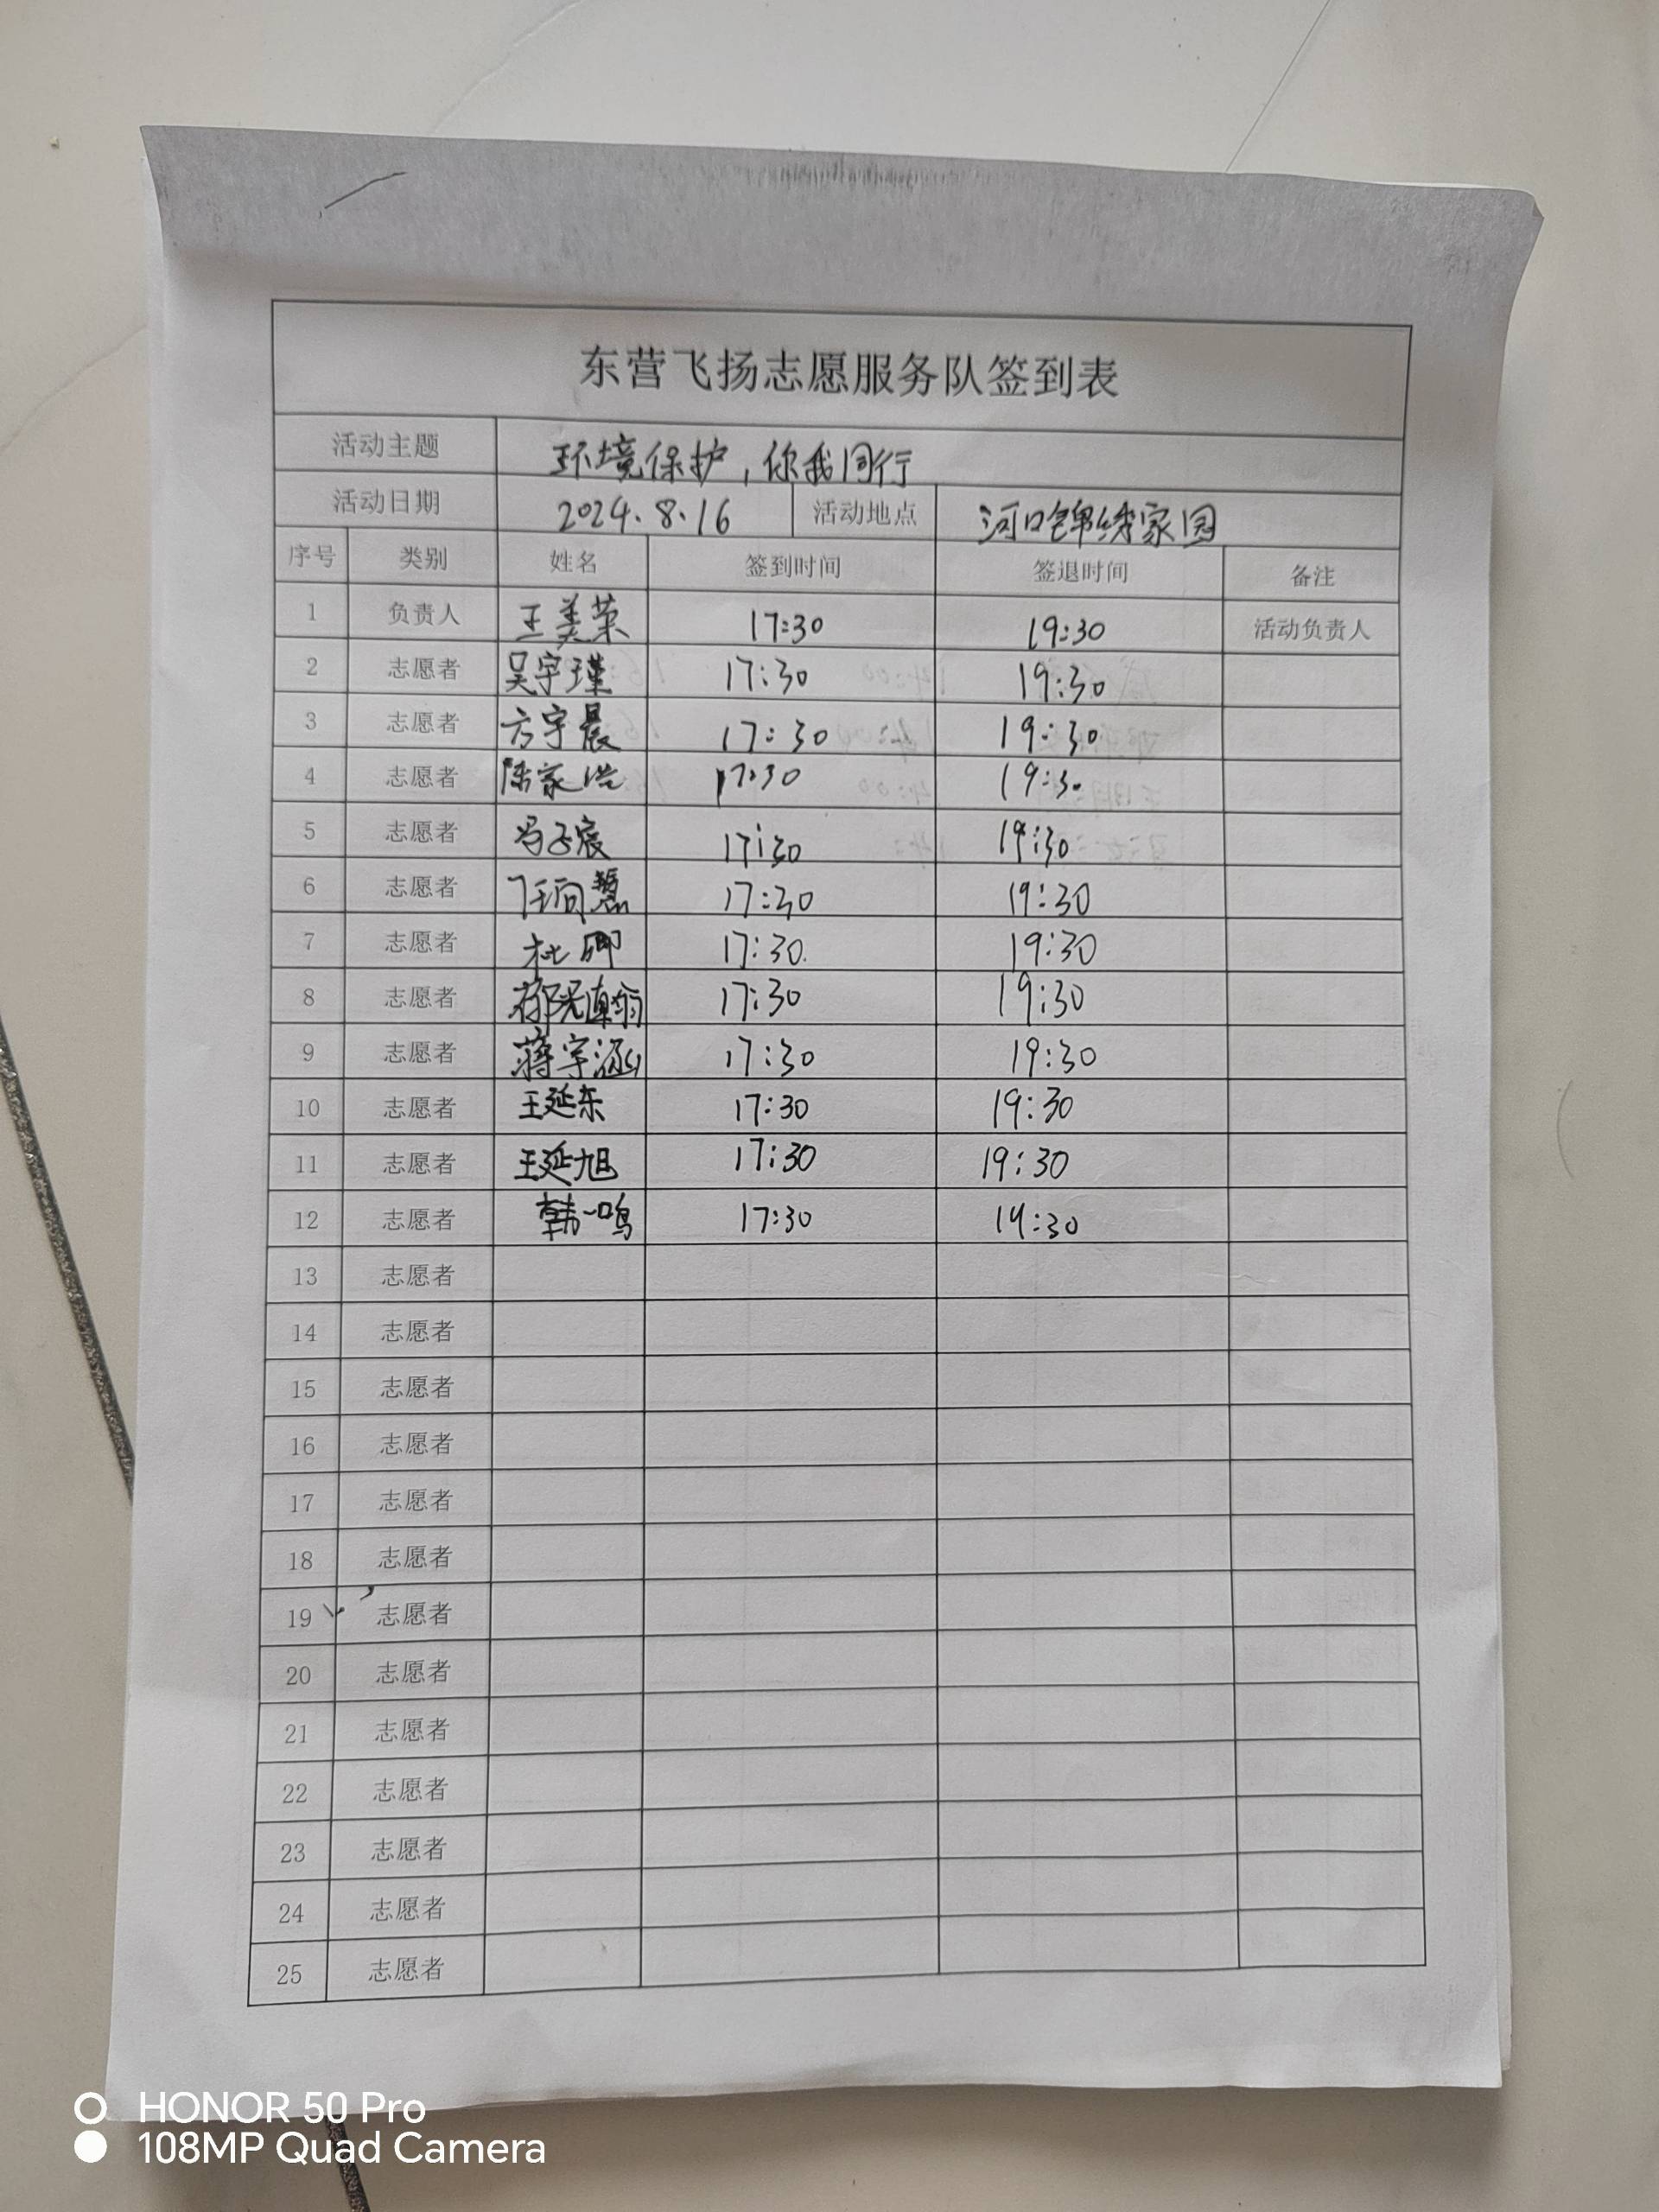 东营飞扬志愿服务队签到表
活动主题 环境保护,你我同行
活动日期 2024.8.16 活动地点 河口锦绣家园
序号 类别 姓名 签到时间 签退时间 备注
1 负责人 王美荣 17:30 19:30 活动负责人
2 志愿者 吴宇瑾 17:30 19:30
3 志愿者 方宇晨 17:30 19:30
4 志愿者 陈家浩 17:30 19:30
5 志愿者 冯子宸 17:30 19:30
6 志愿者 17:30 19:30
7 志愿者 杜卿 17:30 19:30
8 志愿者 17:30 19:30
9 志愿者 蒋宇涵 17:30 19:30
10 志愿者 王延东 17:30 19:30
11 志愿者 王延旭 17:30 19:30
12 志愿者 韩一鸣 17:30 19:30
13 志愿者
14 志愿者
15 志愿者
16 志愿者
17 志愿者
18 志愿者
19 志愿者
20 志愿者
21 志愿者
22 志愿者
23 志愿者
24 志愿者
25 志愿者
HONOR 50 Pro
108MP Quad Camera